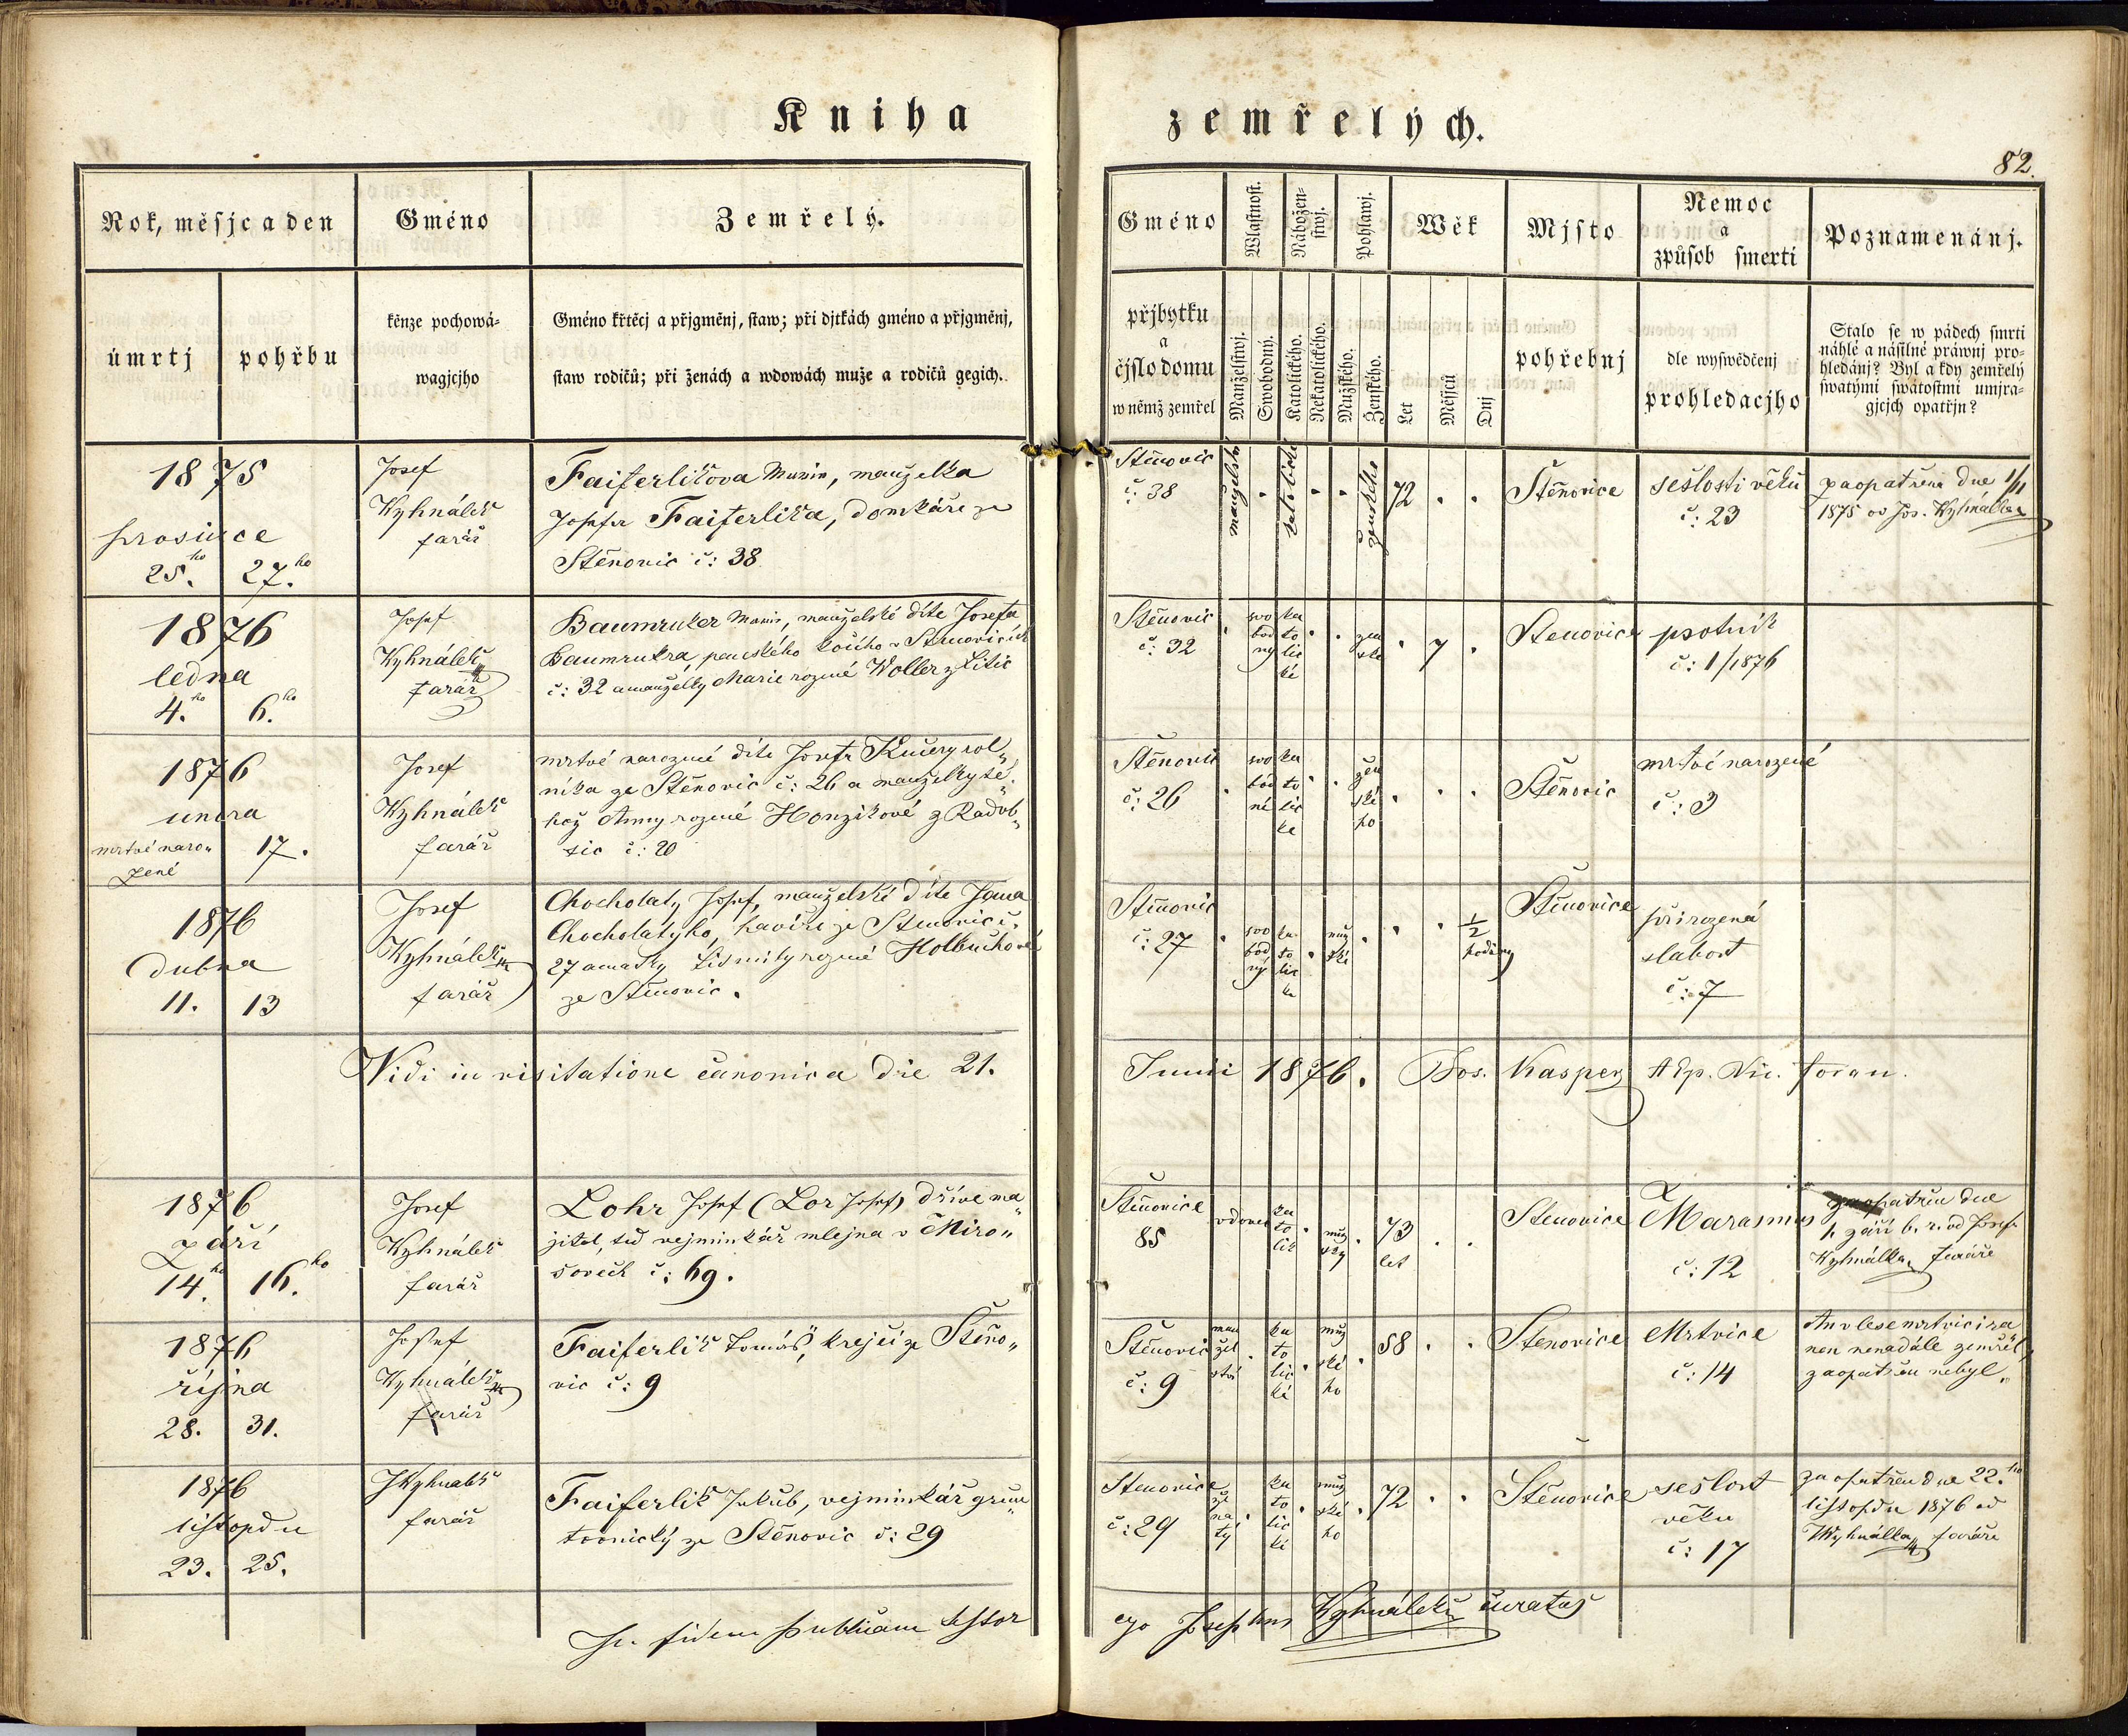 Kniha zemřelých.
82.
Rok, měsjc a den
Gméno
Zemřelý.
úmrtj
pohřbu
kěnze pochowá-
wagjcjho
Gméno křtěcj a přjgměnj, staw; při djtkách gméno a přjgměnj,
staw rodičů; při ženách a wdowách muže a rodičů gegich.
Gméno
Wlastnost.
Nábožen-
stwj.
Pohlawj.
Wěk
Mjsto
Nemoc
a
způsob smerti
Poznamenánj.
přjbytku
a
čjslo domu
w němž zemřel
Manželstwj.
Swobodný.
Katolického.
Nekatolického.
Mužského.
Ženského.
Let
Měsjců
Dnj
pohřebnj
dle wyswědčenj
prohledacjho
Stalo se w pádech smrti
náhlé a násilné práwnj pro-
hledánj? Byl a kdy zemřelý
swatými swátostmi umjra-
gjcjch opatřjn?
1875
prosince
25.ho 27.ho
Josef
Kyhnálek
farář
Faiferlikova Marie, manželka
Josefa Faiferlika, domkáře ze
Stěnovic č: 38
Stěnovic
č: 38
manželství
katolické
ženského
72
Štěnovice
sešlosti věku
č: 23
zaopatřena dne 1/11
1875 od Jos. Kyhnálka
1876
ledna
4.ho 6.ho
Josef
Kyhnálek
farář
Baumruker Marie, manželské dítě Josefa
Baumrukra, panského kočího v Stěnovicích
č: 32 a manželky Marie rozené Woller z Litic
Stěnovic
č: 32
svo
bod
ný
ka
to
lic
ké
žen
ské
7
Stenovice
psotník
č: 1/1876
1876
unora
mrtvé naro„
zené
17.
Josef
Kyhnálek
farář
mrtvé narozené dítě Josefa Kučery rol„
níka ze Stěnovic č: 26 a manželky té„
hož Anny rozené Honzikové z Radob„
zic č: 20
Stěnovic
č: 26
svo
bod
né
ka
to
lic
ke
žen
ské
ho
Štěnovic
mrtvé narozené
č: 3
1876
dubna
11. 13
Josef
Kyhnálek
farář
Chocholatý Josef, manželské dítě Jana
Chocholatýho, havíře ze Stenovic č.
27 a matky Lidmily rozené Holbuchové
ze Stěnovic.
Stěnovic
č: 27
svo
bod
ný
ka
to
lic
ke
muž
ské
1/2
hodiny
Štěnovice
přirozená
slabost
č: 7
Vidi in visitatione canonica die 21. Junii 1876. Jos. Kasper AEp. Vic. foran.
1876
září
14.ho 16.ho
Josef
Kyhnálek
farář
Lohr Josef (Lor Josef) dříve ma„
jitel, teď vejminkář mlejna v Miro„
šovech č: 69.
Stěnovice
85
vdovec
ka
to
lik
muž
ský
73
let
Stenovice
Marasmus
č: 12
zaopatřen dne
1. září b. r. od Josefa
Kyhnálka, faráře
1876
října
28. 31.
Josef
Kyhnálek
farář
Faiferlik Tomáš, krejčí ze Stěno„
vic č: 9
Štěnovic
č: 9
man
žel
ství
ka
to
lic
ké
muž
ské
ho
58
Stenovice
Mrtvice
č: 14
An v lese mrtvicí ra
nen nenadále zemřel,
zaopatřen nebyl„
1876
listopdu
23. 25.
JKyhnalek
farář
Faiferlik Jakub, vejminkář grun„
tovnický ze Stěnovic č: 29
Stenovice
č: 29
že
na
tý
ka
to
lic
ké
muž
ské
ho
72
Štěnovice
sešlost
věku
č: 17
zaopatřen dne 22.ho
listopdu 1876 od
JKyhnálka faráře
In fidem publicam testor ego Josephus Kyhnálek curatus